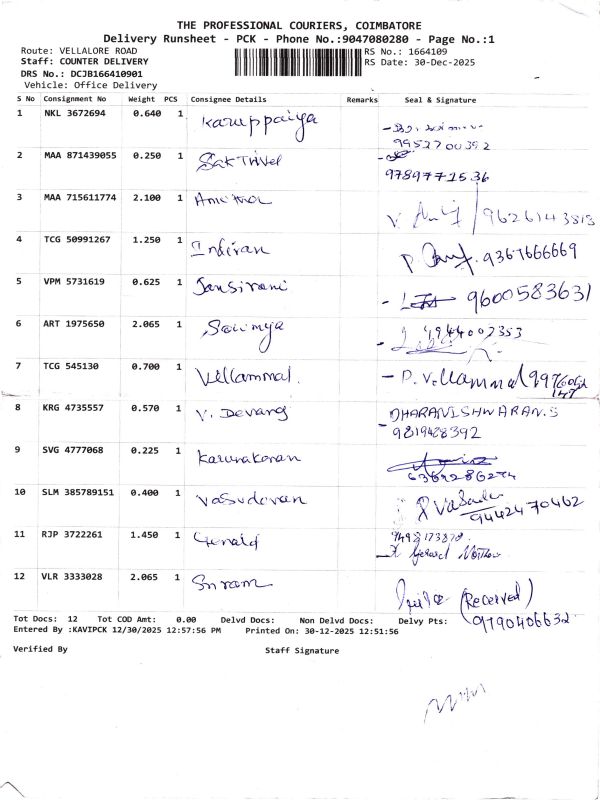 THE PROFESSIONAL COURIERS, COIMBATORE
Delivery Runsheet - PCK - Phone No.:9047080280 - Page No.:1
Route: VELLALORE ROAD RS No.: 1664109
Staff: COUNTER DELIVERY RS Date: 30-Dec-2025
DRS No.: DCJB166410901
Vehicle: Office Delivery
S No Consignment No Weight PCS Consignee Details Remarks Seal & Signature
1 NKL 3672694 0.640 1 Karuppaiya
9952700392
2 MAA 871439055 0.250 1 Sakthivel
9789771536
3 MAA 715611774 2.100 1 9626143813
4 TCG 50991267 1.250 1 Indiran 9367666669
5 VPM 5731619 0.625 1 Jansirani 9600583631
6 ART 1975650 2.065 1 Sowmya
7 TCG 545130 0.700 1 Vellammal. P. Vellammal
8 KRG 4735557 0.570 1 V. Devang DHARANISHWARAN.S
9819428392
9 SVG 4777068 0.225 1 Karunakaran
10 SLM 385789151 0.400 1 Vasudevan
9442470462
11 RJP 3722261 1.450 1 Gerald
12 VLR 3333028 2.065 1 Sriram (Received)
9790406632
Tot Docs: 12 Tot COD Amt: 0.00 Delvd Docs: Non Delvd Docs: Delvy Pts:
Entered By :KAVIPCK 12/30/2025 12:57:56 PM Printed On: 30-12-2025 12:51:56
Verified By Staff Signature